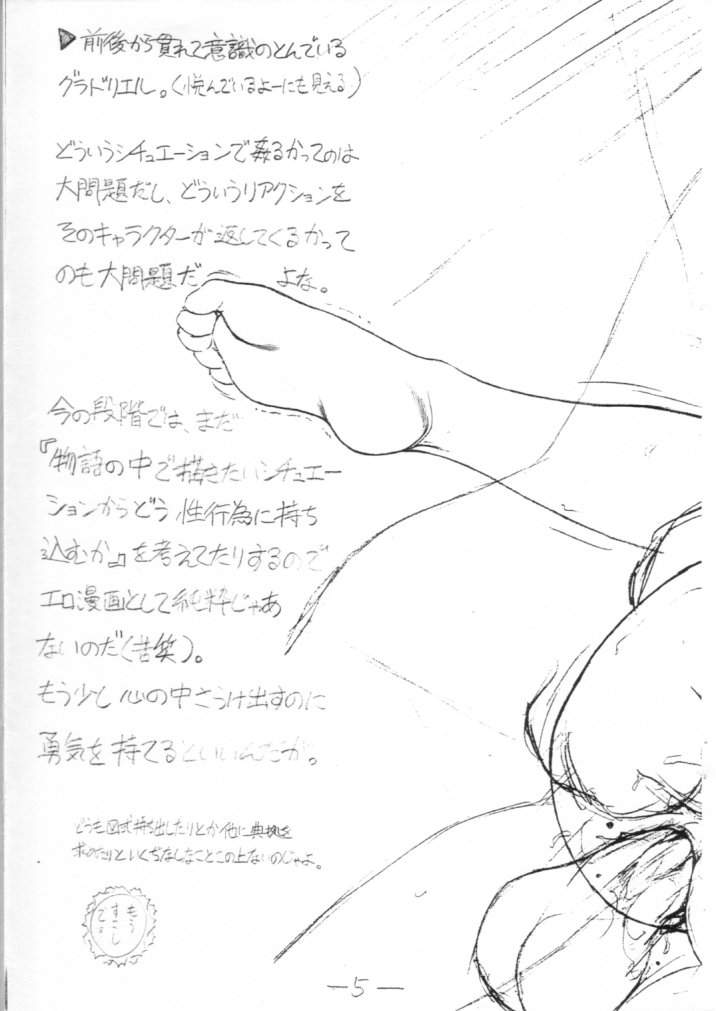 ▶前後から貫れて意識のとんでいる
グラドリエル。(悦んでいるよーにも見える)
どういうシチュエーションで姦るかってのは
大問題だし、どういうリアクションを
そのキャラクターが返してくるかって
のも大問題だ よな。
今の段階では、まだ
『物語の中で描きたいシチュエー
ションからどう性行為に持ち
込むか』を考えてたりするので
エロ漫画として純粋じゃあ
ないのだ(苦笑)。
もう少し心の中さらけ出すのに
勇気を持てるといいんだが。
どうも図式持ち出したりとか他に典拠を
求めたりといくぢなしなことこの上ないのじゃよ。
もう
すこし
でしょ
—5—